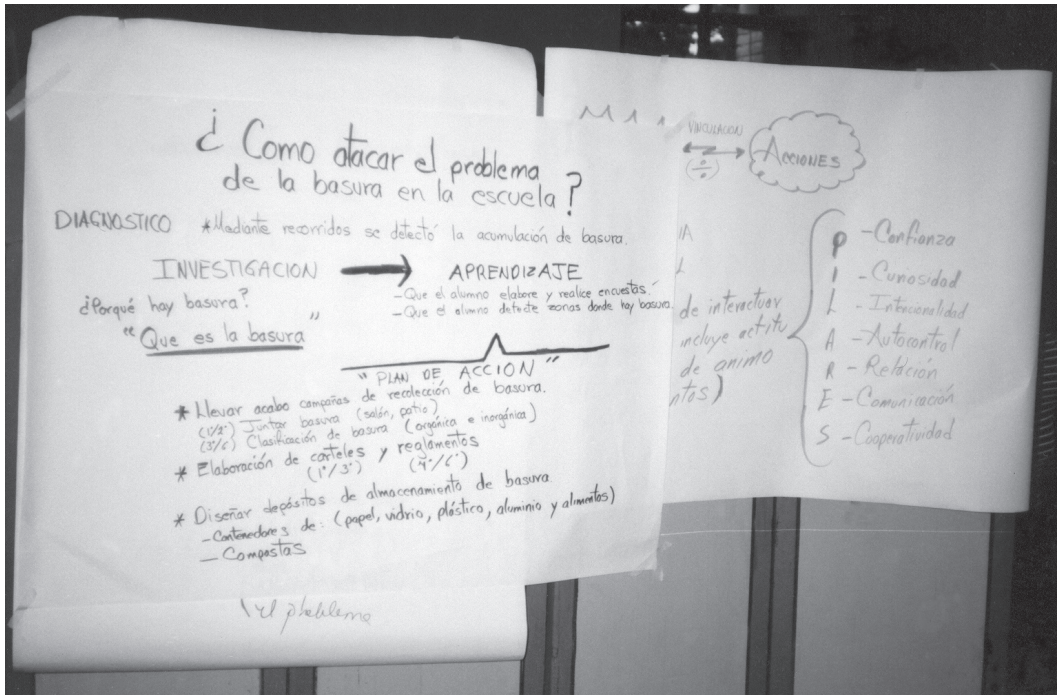 ¿ Como atacar el problema
de la basura en la escuela?
DIAGNOSTICO *Mediante recorridos se detectó la acumulación de basura.
INVESTIGACION → APRENDIZAJE
¿Porqué hay basura?
"Que es la basura"
-Que el alumno elabore y realice encuestas.
-Que el alumno detecte zonas donde hay basura.
"PLAN DE ACCION"
* Llevar acabo campañas de recolección de basura.
(1°/2°) Juntar basura (salón, patio)
(3°/6) Clasificación de basura (orgánica e inorgánica)
* Elaboración de carteles y reglamentos
(1°/3°) (4°/6°)
* Diseñar depósitos de almacenamiento de basura
-Contenedores de: (papel, vidrio, plástico, aluminio y alimentos)
- Compostas
el
VINCULACION
ACCIONES
IA
L
de interactuar
incluye actitu
de animo
ntos)
P - Confianza
I - Curiosidad
L - Intencionalidad
A - Autocontrol
R - Relación
E - Comunicación
S - Cooperatividad